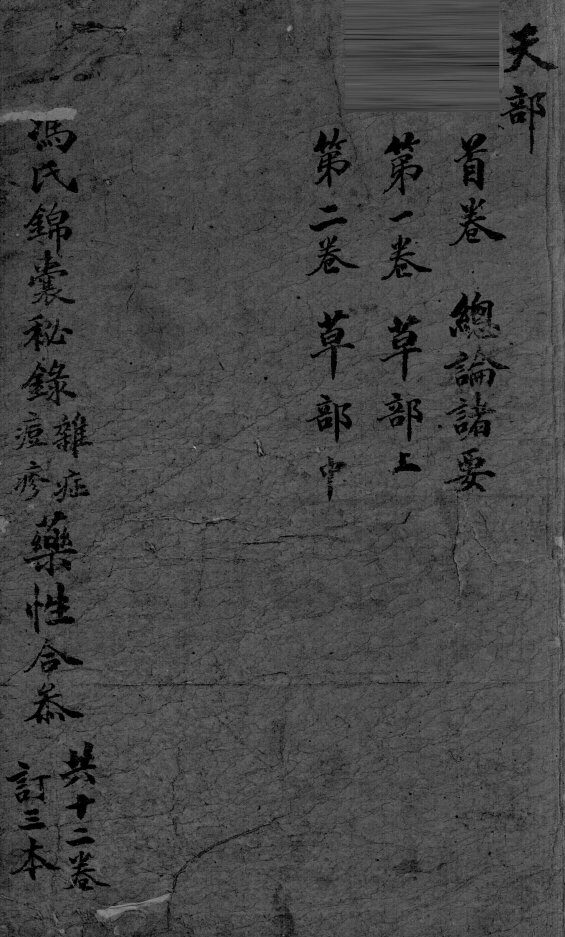 天部
首卷 總論諸要
第一卷 草部上
第二卷 草部中
馮氏錦囊秘錄雜症痘疹藥性合叅
共十二卷
訂三本